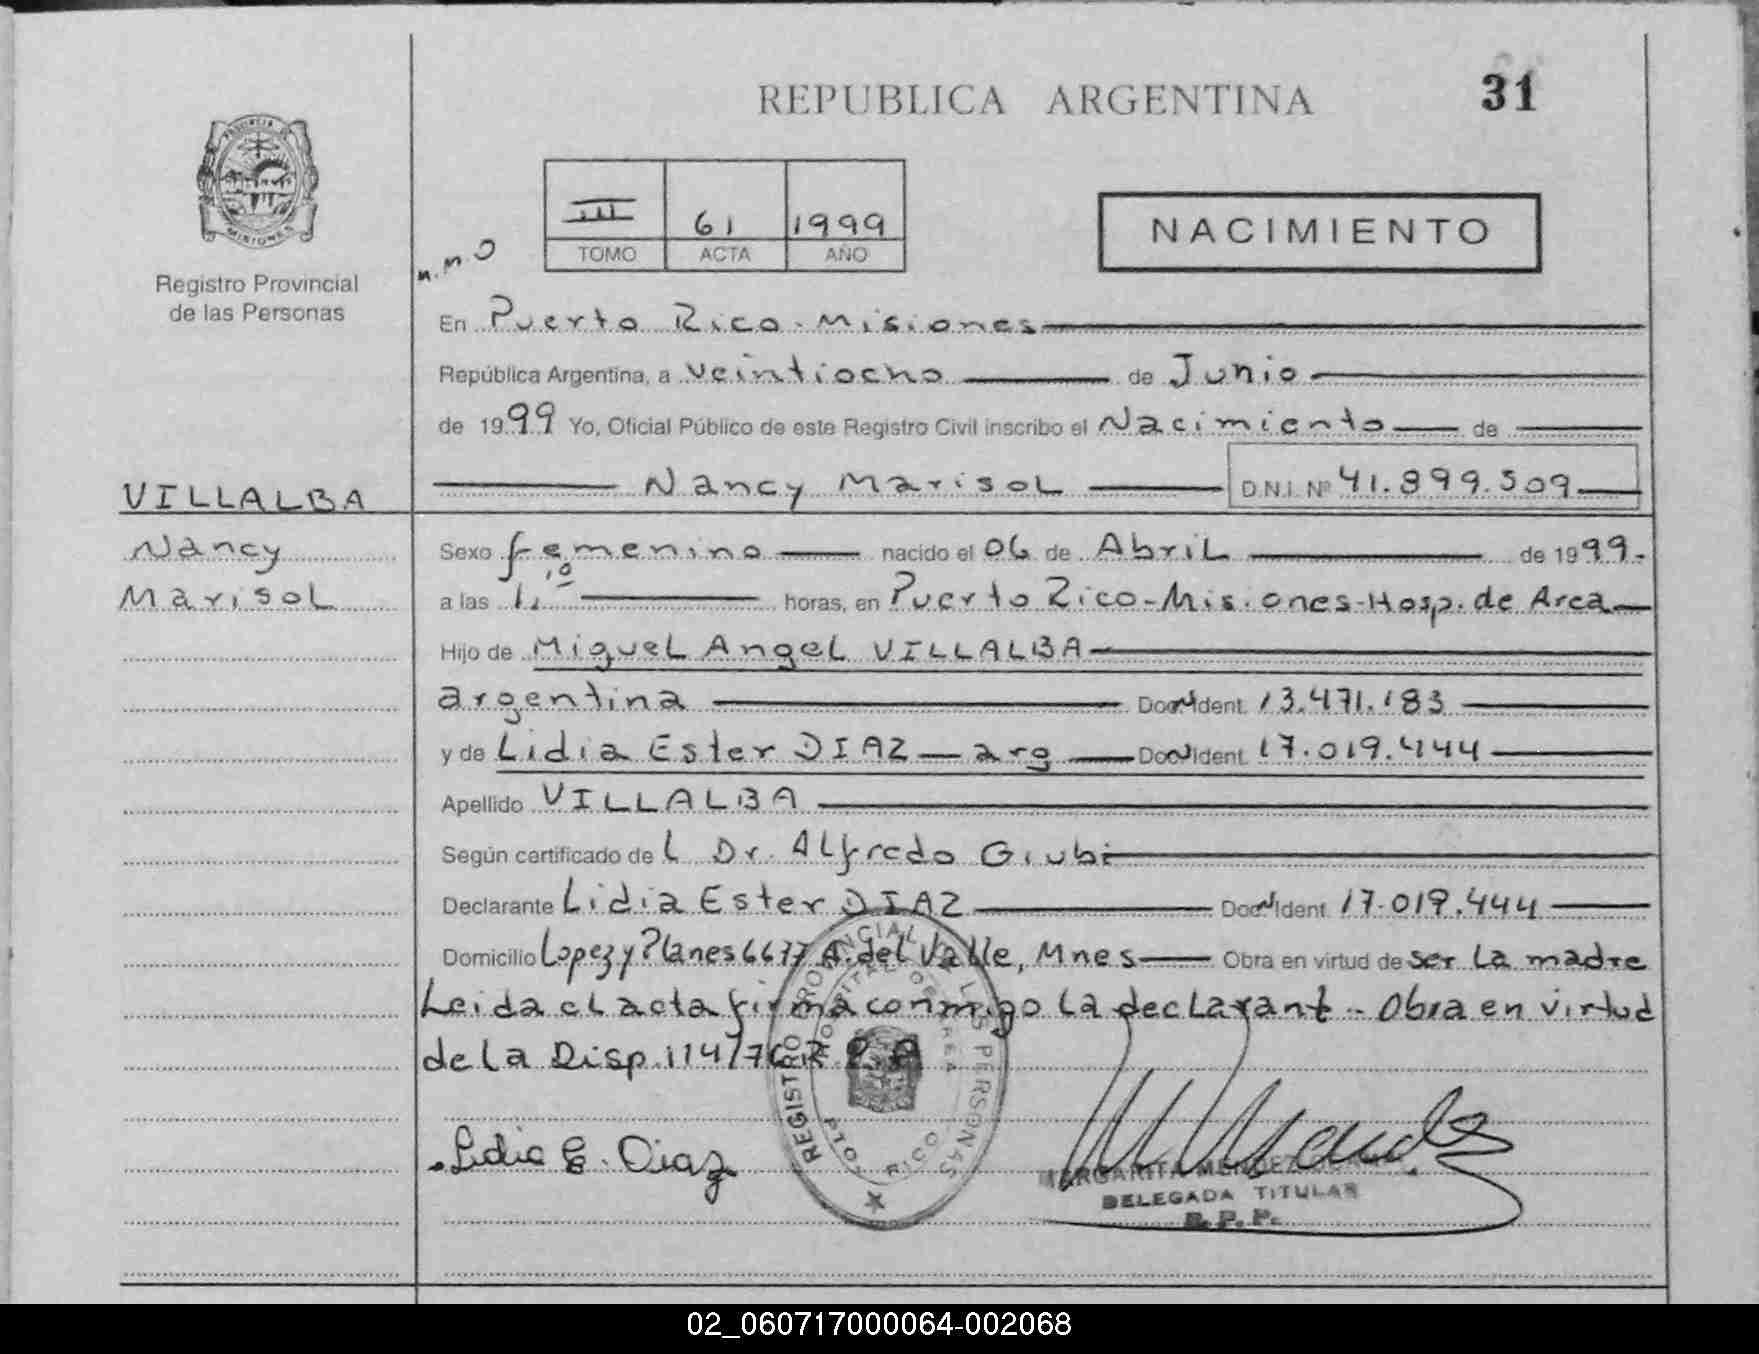 REPUBLICA ARGENTINA
31
PROVINCIA DE
MISIONES
Registro Provincial
de las Personas
III 61 1999
TOMO ACTA AÑO
NACIMIENTO
n.n.O
En Puerto Rico - Misiones
República Argentina, a veintiocho de Junio
de 1999 Yo, Oficial Público de este Registro Civil inscribo el Nacimiento de
Nancy Marisol D.N.I. Nº 41.899.509
VILLALBA
Nancy
Marisol
Sexo femenino nacido el 06 de Abril de 1999.
a las 1,10 horas, en Puerto Rico-Misiones-Hosp. de Area
Hijo de Miguel Angel VILLALBA
argentina Doc. Ident. 13.471.183
y de Lidia Ester DIAZ - arg Doc. Ident. 17.019.444
Apellido VILLALBA
Según certificado de L Dr. Alfredo Giubi
Declarante Lidia Ester DIAZ Doc. Ident. 17.019.444
Domicilio Lopez y Planes 6677 A. del Valle, Mnes Obra en virtud de ser la madre
Leida el acta firma conmigo la declarant - Obra en virtud
de la Disp. 114/76 R.P.P
REGISTRO PROVINCIAL DE LAS PERSONAS
HOSPITAL DE AREA
PTO. RICO
Lidia E. Diaz
MARGARITA MENDEZ
DELEGADA TITULAR
R. P. P.
02_060717000064-002068